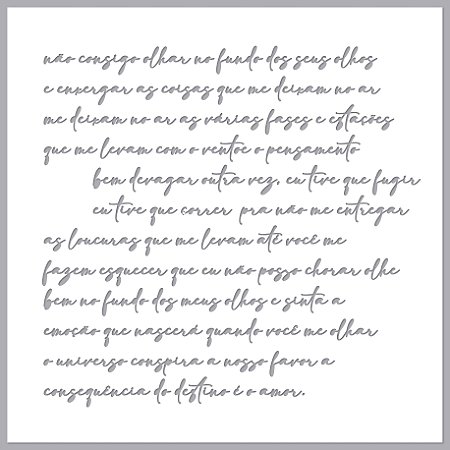 não consigo olhar no fundo dos seus olhos
e enxergar as coisas que me deixam no ar
me deixam no ar as várias fases e estações
que me levam com o ventoe o pensamento
bem devagar outra vez, eu tive que fugir
eu tive que correr pra não me entregar
as loucuras que me levam até você me
fazem esquecer que eu não posso chorar olhe
bem no fundo dos meus olhos e sinta a
emoção que nascerá quando você me olhar
o universo conspira a nosso favor a
consequência do destino é o amor.